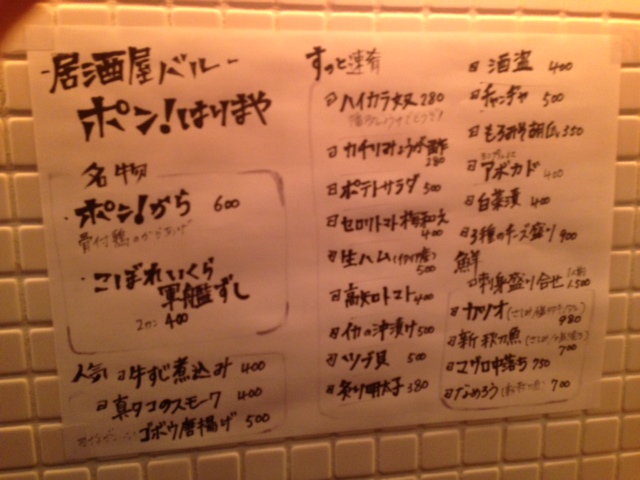 -居酒屋バル-
ポン!はりまや
名物
・ポン!がら 600
骨付鶏のからあげ
・こぼれいくら
軍艦ずし
2カン 400
人気 牛すじ煮込み 400
真タコのスモーク 400
ゴボウ唐揚げ 500
すっと速肴
ハイカラ奴 280
カチリみょうが酢
280
ポテトサラダ 500
セロリトマト梅和え
400
生ハム(イタリア産)
500
高知トマト 400
イカの沖漬け 500
ベツブ貝 500
炙り明太子 380
酒盗 400
チャンヂャ 500
もろみそ胡瓜 350
アボカド 400
白菜漬 400
3種のチーズ盛り 900
鮮
刺身盛り合せ 1,500
カツオ
980
新秋刀魚
700
マグロ中落ち 750
なめろう 700